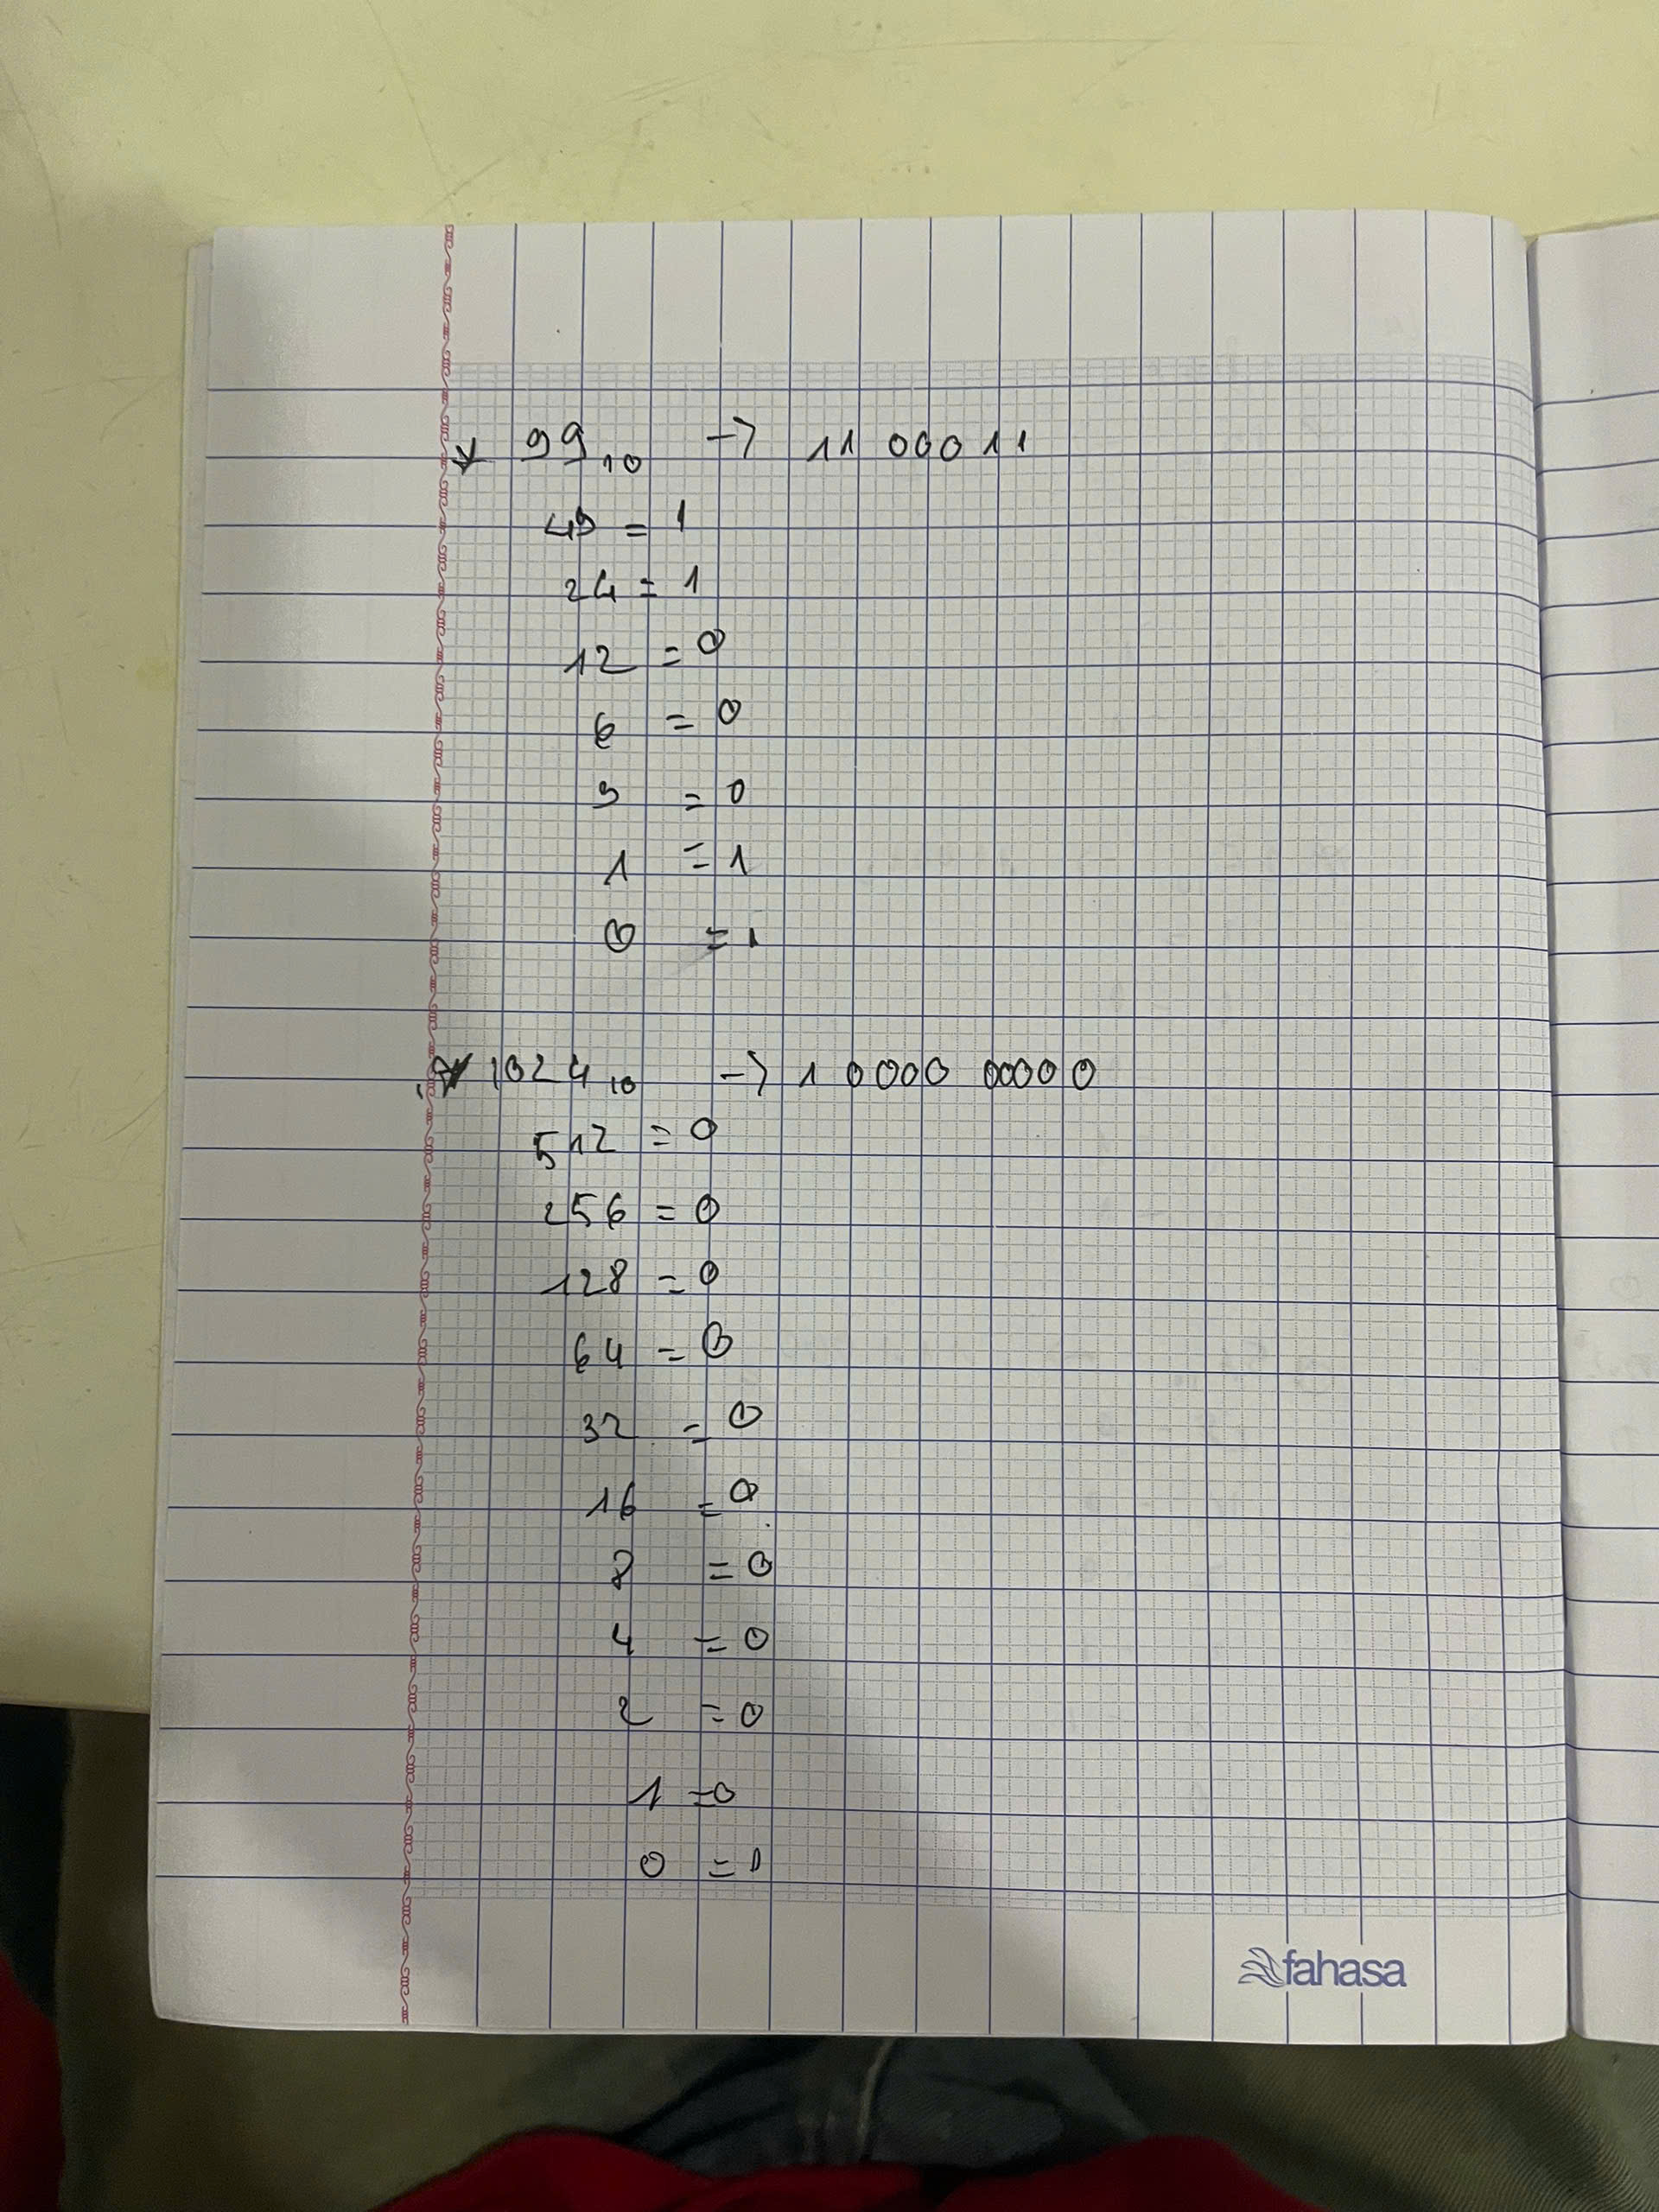 99₁₀ -> 11 000 11
49 = 1
24 = 1
12 = 0
6 = 0
3 = 0
1 = 1
0 = 1
1024₁₀ -> 1 0000 00000 0
512 = 0
256 = 0
128 = 0
64 = 0
32 = 0
16 = 0
8 = 0
4 = 0
2 = 0
1 = 0
0 = 1
fahasa